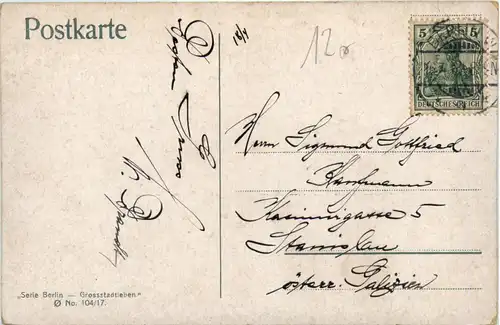 Postkarte
12
5 5
DEUTSCHES REICH
Besten Gruss
Herrn Sigmund Gottfried
Kaufmann
Kasimirgasse 5
Stanislau
österr. Galizien
„Serie Berlin — Grossstadtleben"
No. 104/17.